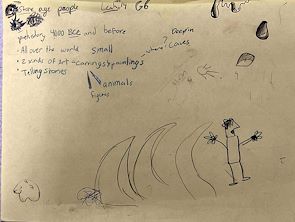 Stone age people
prehistory 4000 BCE and before
Deep in
All over the world
small
where?
Caves
2 kinds of art = Carvings & paintings
Telling stories
animals
figures